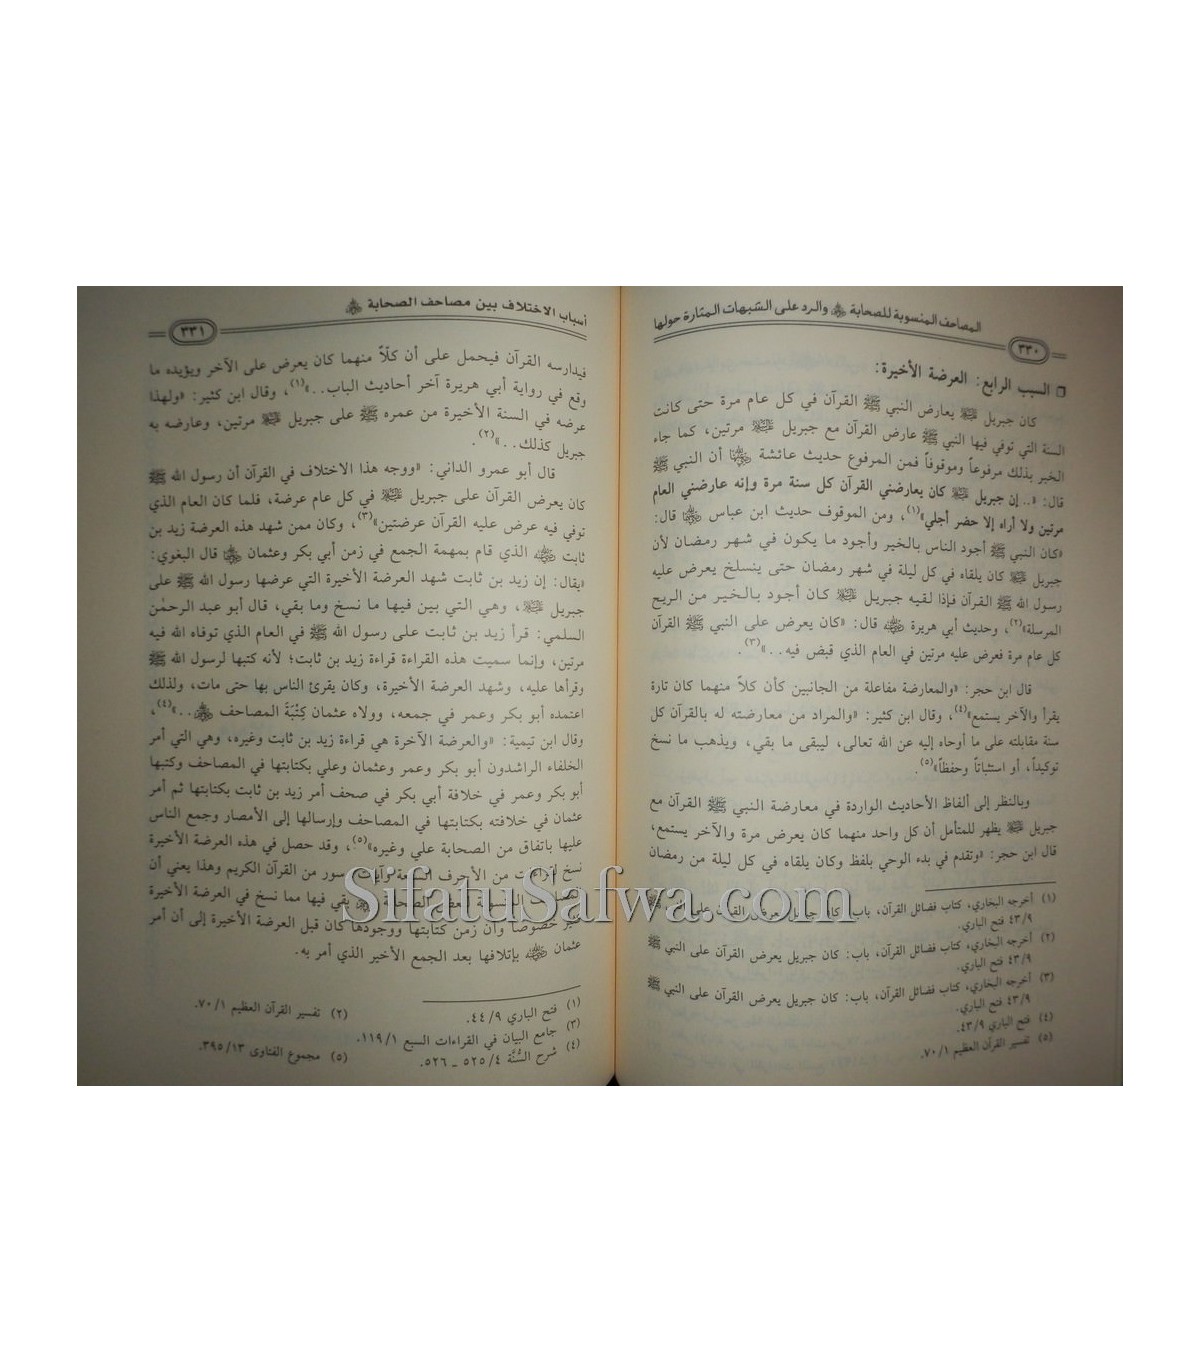 المصاحف المنسوبة للصحابة ﷺ والرد على الشبهات المثارة حولها
٣٣٠
السبب الرابع: العرضة الأخيرة:
كان جبريل يعارض النبي ﷺ القرآن في كل عام مرة حتى كانت
السنة التي توفي فيها النبي ﷺ عارض القرآن مع جبريل مرتين، كما جاء
الخبر بذلك مرفوعاً وموقوفاً فمن المرفوع حديث عائشة أن النبي ﷺ
قال: «.. إن جبريل كان يعارضني القرآن كل سنة مرة وإنه عارضني العام
مرتين ولا أراه إلا حضر أجلي»(١)، ومن الموقوف حديث ابن عباس قال:
«كان النبي ﷺ أجود الناس بالخير وأجود ما يكون في شهر رمضان لأن
جبريل كان يلقاه في كل ليلة في شهر رمضان حتى ينسلخ يعرض عليه
رسول الله ﷺ القرآن فإذا لقيه جبريل كان أجود بالخير من الريح
المرسلة»(٢)، وحديث أبي هريرة قال: «كان يعرض على النبي ﷺ القرآن
كل عام مرة فعرض عليه مرتين في العام الذي قبض فيه..»(٣).
قال ابن حجر: «والمعارضة مفاعلة من الجانبين كأن كلاً منهما كان تارة
يقرأ والآخر يستمع»(٤)، وقال ابن كثير: «والمراد من معارضته له بالقرآن كل
سنة مقابلته على ما أوحاه إليه عن الله تعالى، ليبقى ما بقي، ويذهب ما نسخ
توكيداً، أو استثباتاً وحفظاً»(٥).
وبالنظر إلى ألفاظ الأحاديث الواردة في معارضة النبي ﷺ القرآن مع
جبريل يظهر للمتأمل أن كل واحد منهما كان يعرض مرة والآخر يستمع،
قال ابن حجر: «وتقدم في بدء الوحي بلفظ وكان يلقاه في كل ليلة من رمضان
(١) أخرجه البخاري، كتاب فضائل القرآن، باب: كان جبريل يعرض القرآن على النبي ﷺ
٤٣/٩ فتح الباري.
(٢) أخرجه البخاري، كتاب فضائل القرآن، باب: كان جبريل يعرض القرآن على النبي ﷺ
٤٣/٩ فتح الباري.
(٣) أخرجه البخاري، كتاب فضائل القرآن، باب: كان جبريل يعرض القرآن على النبي ﷺ
٤٣/٩ فتح الباري.
(٤) فتح الباري ٤٣/٩.
(٥) تفسير القرآن العظيم ٧٠/١.
أسباب الاختلاف بين مصاحف الصحابة
٣٣١
فيدارسه القرآن فيحمل على أن كلّاً منهما كان يعرض على الآخر ويؤيده ما
وقع في رواية أبي هريرة آخر أحاديث الباب..»(١)، وقال ابن كثير: «ولهذا
عرضه في السنة الأخيرة من عمره ﷺ على جبريل مرتين، وعارضه به
جبريل كذلك..»(٢).
قال أبو عمرو الداني: «ووجه هذا الاختلاف في القرآن أن رسول الله ﷺ
كان يعرض القرآن على جبريل في كل عام عرضة، فلما كان العام الذي
توفي فيه عرض عليه القرآن عرضتين»(٣)، وكان ممن شهد هذه العرضة زيد بن
ثابت الذي قام بمهمة الجمع في زمن أبي بكر وعثمان قال البغوي:
«يقال: إن زيد بن ثابت شهد العرضة الأخيرة التي عرضها رسول الله ﷺ على
جبريل، وهي التي بين فيها ما نسخ وما بقي، قال أبو عبد الرحمٰن
السلمي: قرأ زيد بن ثابت على رسول الله ﷺ في العام الذي توفاه الله فيه
مرتين، وإنما سميت هذه القراءة قراءة زيد بن ثابت؛ لأنه كتبها لرسول الله ﷺ
وقرأها عليه، وشهد العرضة الأخيرة، وكان يقرئ الناس بها حتى مات، ولذلك
اعتمده أبو بكر وعمر في جمعه، وولاه عثمان كِتْبَةَ المصاحف..»(٤)،
وقال ابن تيمية: «والعرضة الآخرة هي قراءة زيد بن ثابت وغيره، وهي التي أمر
الخلفاء الراشدون أبو بكر وعمر وعثمان وعلي بكتابتها في المصاحف وكتبها
أبو بكر وعمر في خلافة أبي بكر في صحف أمر زيد بن ثابت بكتابتها ثم أمر
عثمان في خلافته بكتابتها في المصاحف وإرسالها إلى الأمصار وجمع الناس
عليها باتفاق من الصحابة علي وغيره»(٥)، وقد حصل في هذه العرضة الأخيرة
نسخ لقراءات من الأحرف السبعة وآيات وسور من القرآن الكريم وهذا يعني أن
المنسوبة لبعض الصحابة بقي فيها مما نسخ في العرضة الأخيرة
خصوصاً وأن زمن كتابتها ووجودها كان قبل العرضة الأخيرة إلى أن أمر
عثمان بإتلافها بعد الجمع الأخير الذي أمر به.
(١) فتح الباري ٤٤/٩. (٢) تفسير القرآن العظيم ٧٠/١.
(٣) جامع البيان في القراءات السبع ١١٩/١.
(٤) شرح السُّنَّة ٥٢٥/٤ ـ ٥٢٦. (٥) مجموع الفتاوى ٣٩٥/١٣.
SifatuSafwa.com